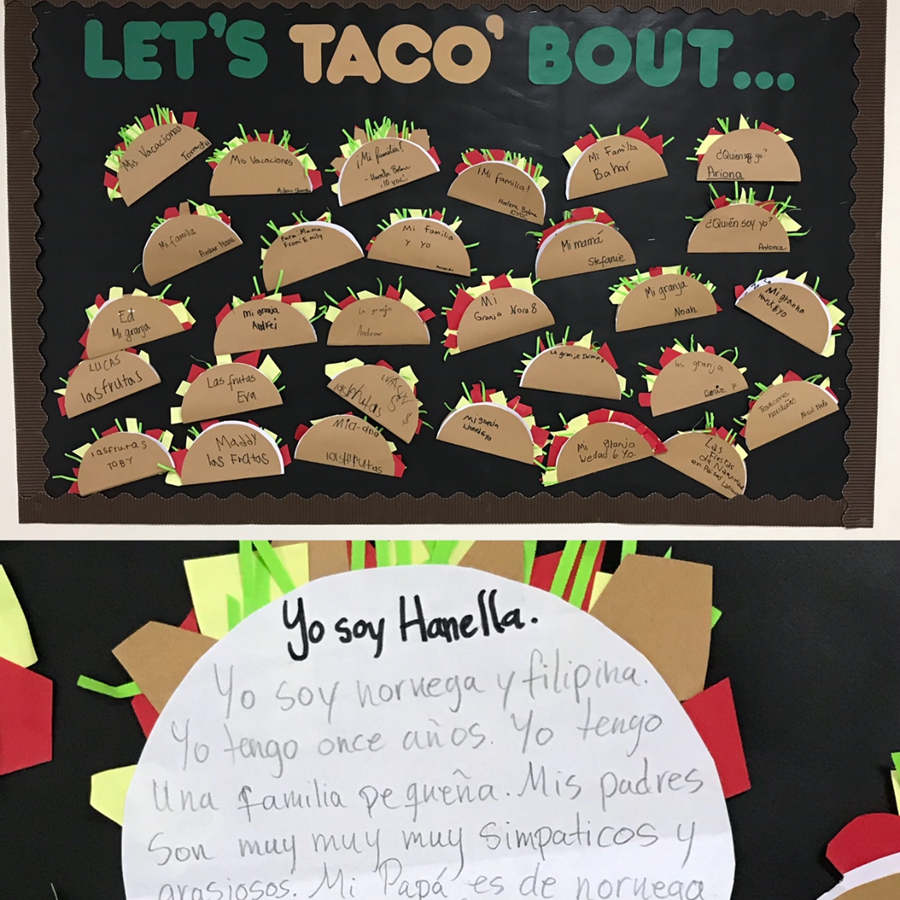 LET'S TACO' BOUT...
Mis Vacaciones
Mis Vacaciones
¡Mi familia!
¡Mi familia!
Mi Familia
Bahar
¿Quien soy yo?
Ariona
Mi familia
Para: Mama
From: Emily
Mi familia
y yo
Mi mamá
Stefanie
¿Quién soy yo?
Antonia
Ed
Mi granja
mi granja
Andrei
La granja
Andrew
Mi
Granja Nora 8
Mi granja
Noah
Mi granja
LUCAS
las frutas
Las frutas
Eva
las frutas
Mi granja
la granja
mi granja
las frutas
TOBY
Maddy
las Frutas
Mia-ana
las frutas
Mi granja
Vedad 6 Yo.
Las
Fiestas
de Navidad
en Países
Yo soy Hanella.
Yo soy noruega y filipina.
Yo tengo once años. Yo tengo
Una familia pequeña. Mis padres
Son muy muy muy simpaticos y
grasiosos. Mi Papá es de noruega